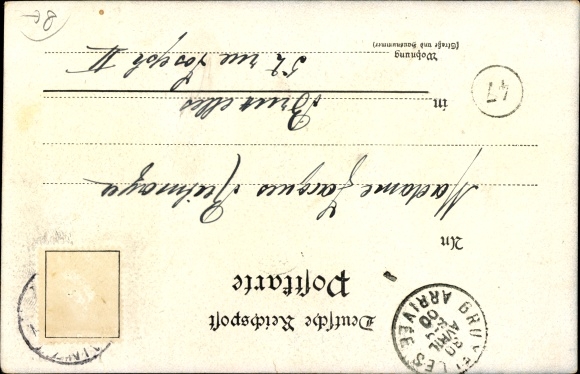 Deutsche Reichspost
Postkarte
An
Madame Jacques
in Bruxelles
Wohnung 52 rue Joseph II
(Straße und Hausnummer)
BRUXELLES
ARRIVÉE
AVRIL
00
47